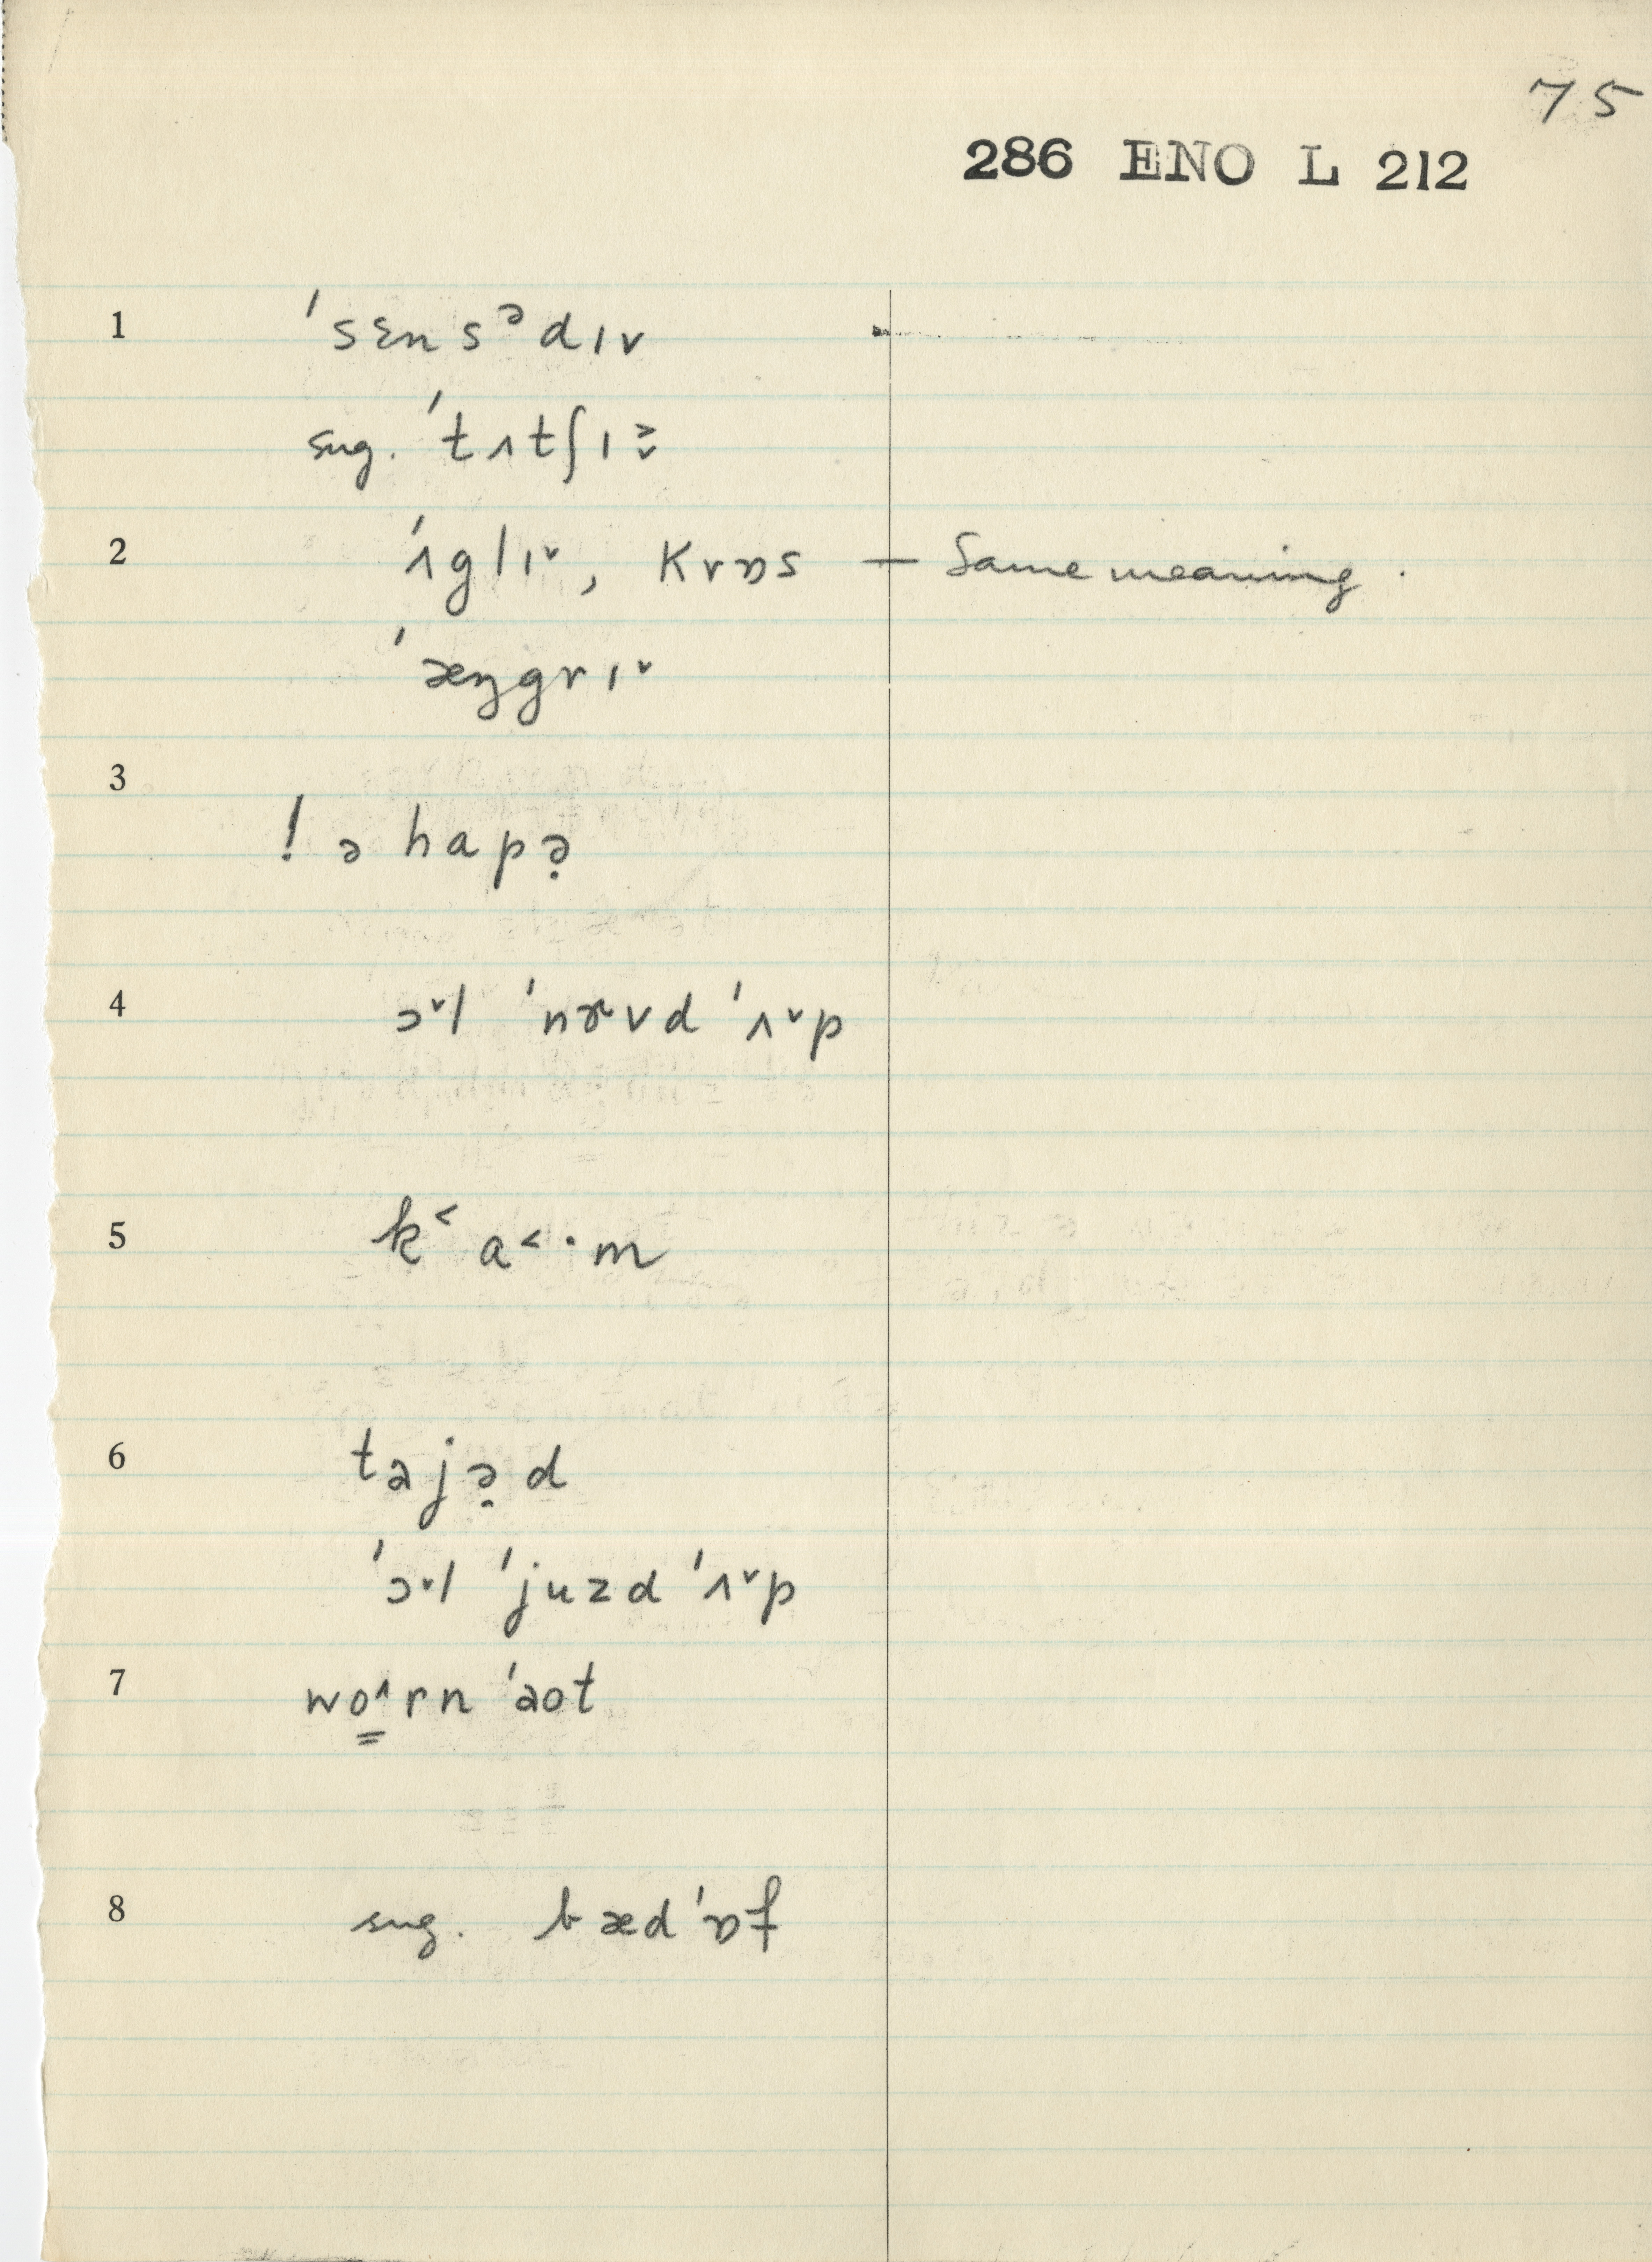 75
286 ENO L 212
1 ˈsɛnsᵊdɪv
sug. ˈtʌtʃɪ˃̬
2 ˈʌglɪˇ, krɒs — Same meaning.
ˈæŋgrɪˇ
3
! ə hapə̣
4 ɔˇl ˈnɝvd ˈʌˇp
5 k˂ a˂·m
6 tajə̣d
ˈɔˇl ˈjuzd ˈʌˇp
7 wo̳^rn ˈaot
8 sug. bædˈɒf